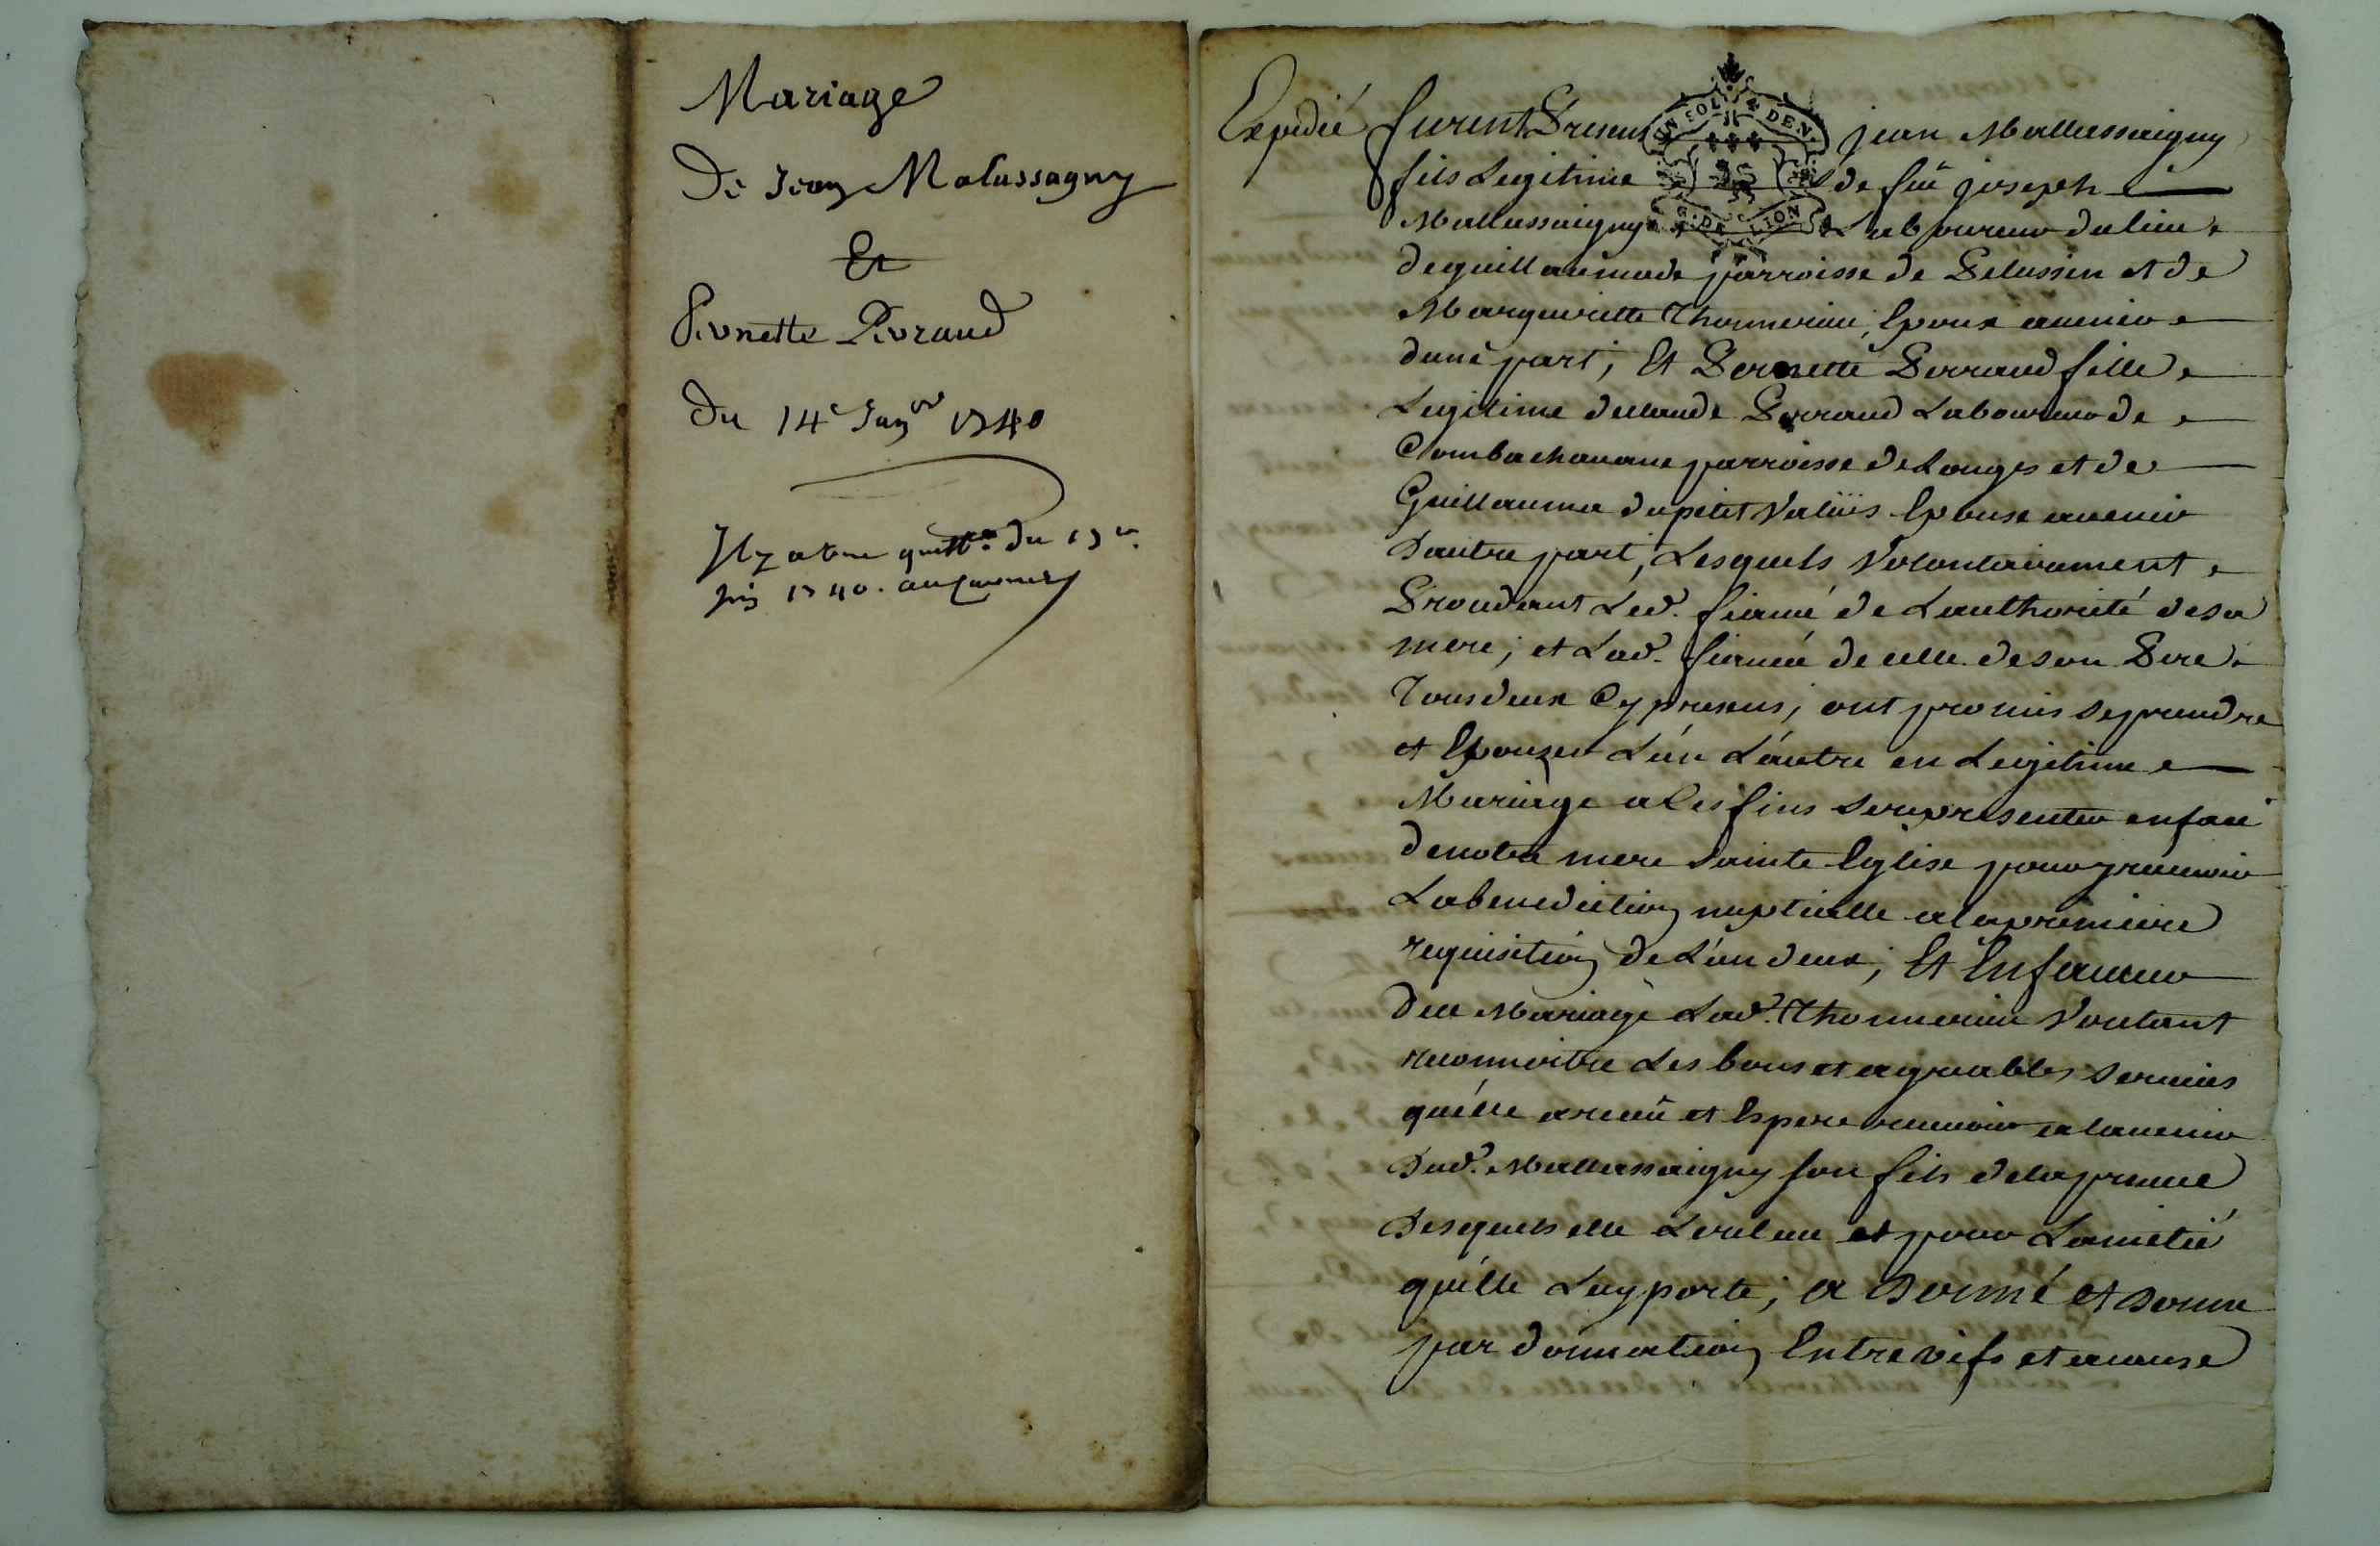 Mariage
De Jean Malassagny
Et
Pernette Perraud
Du 14e Janver 1740
Il y a une quittce du 13e
1740. au
Expedié furent Presens jean Mallassaigny
fils Legitime de feu joseph
Mallassaigny Laboureur du lieu
de guillaumade parroisse de Pelussin et de
Margueritte Thonnerieu, Epoux avenir
dune part; Et Pernette Perraud fille
Legitime de claude Perraud Laboureur de
Combachavane parroisse de Longes et de
Guillauma dupetit Valüis Epouse avenir
dautre part, Lesquels Volontairement
Procedant Led. fiancé de Lauthorité de sa
mere; et Lad. fiancée de celle de son Pere
Tous deux Cy presens; ont promis se prendre
et Epouzer L'un L'autre en Legitime
Mariage a Ces fins se representer en face
de notre mere Sainte Eglise pour y recevoir
La benediction nuptialle a la premiere
requisition de L'un deux; Et En faveur
du Mariage Lad. Thonnerieu Voulant
reconnoitre Les bons et agreables services
qu'elle a receu et Espere recevoir a lavenir
Dud. Mallassaigny son fils de la preuve
Desquels elle Le releve et pour Lamitié
qu'elle Luy porte; a Donné et Donne
par donnation Entre vifs et a cause
UN SOL 4 DEN.
G. DE LION